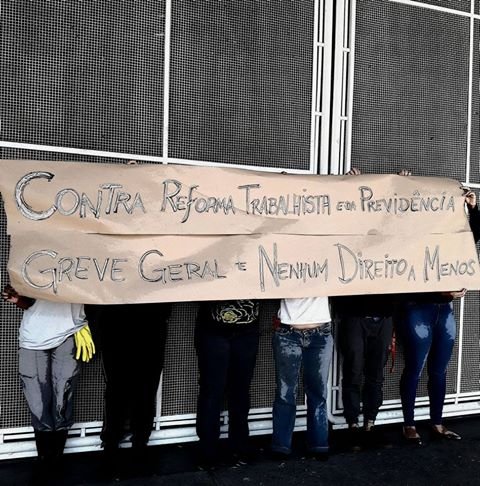 CONTRA REFORMA TRABALHISTA E DA PREVIDÊNCIA
GREVE GERAL E NENHUM DIREITO A MENOS